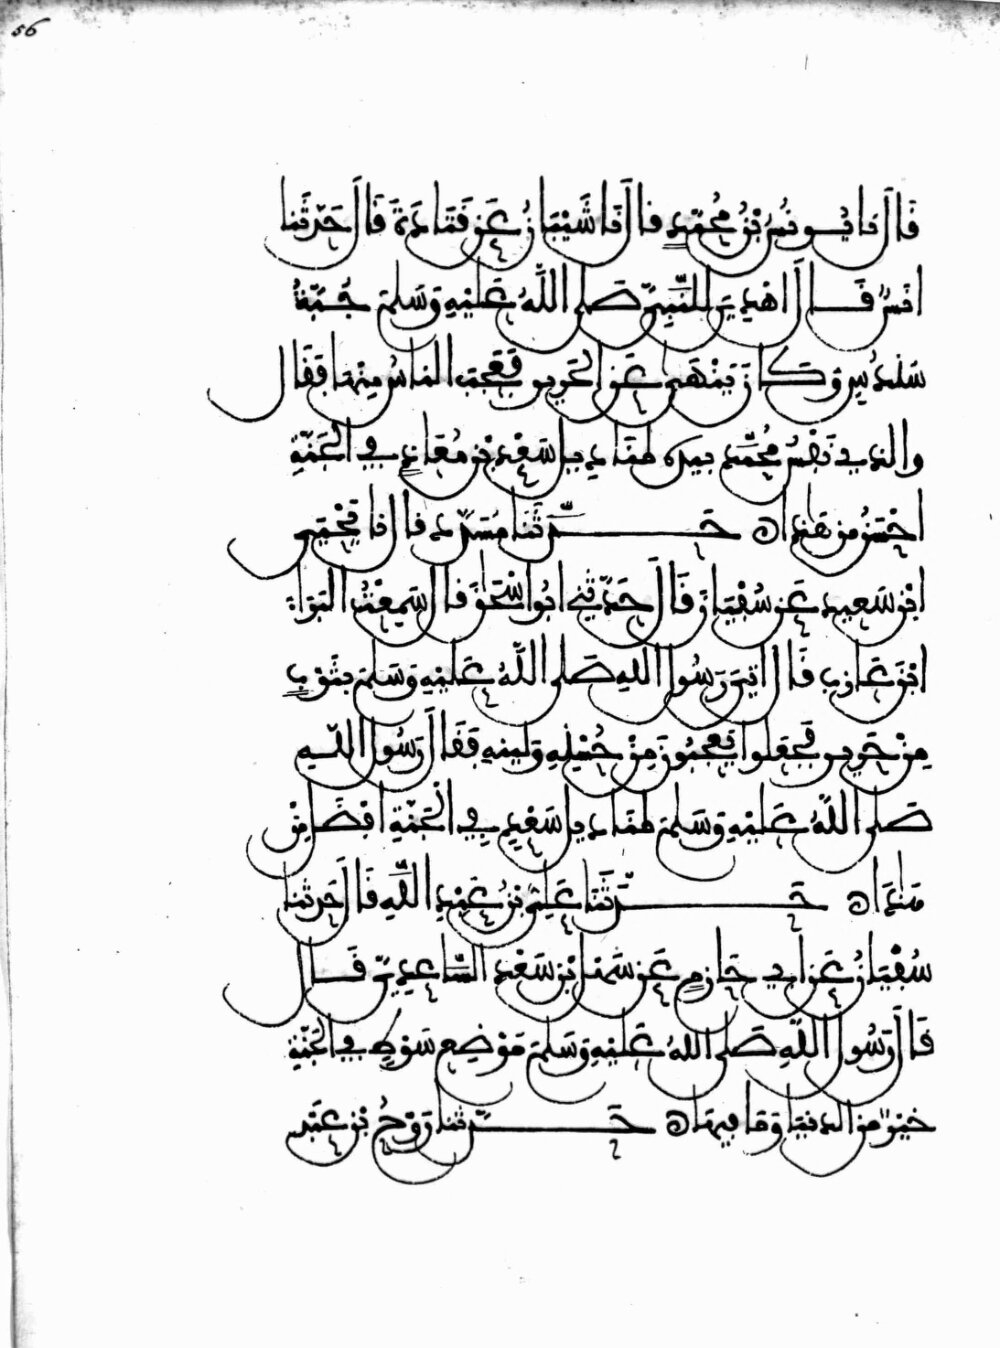 56
قَالَ نا يُونُسُ بْنُ مُحَمَّدٍ قال نَا شَيْبَانُ عَن قَتَادَةَ قَالَ حَدَّثَنا
انسٌ قَالَ اهْدِيَ للنَّبِيِّ صَلى اللَّهُ عَلَيْهِ وَسَلمَ جُبّةُ
سُنْدُسٍ وَكَانَ يَنْهَى عَن الحَرِيرِ فَعَجِبَ الناسُ مِنْهَا فَقَالَ
والذي نَفْسُ مُحَمَّدٍ بيده لمَنَادِيلُ سَعْدِ بْنِ مُعَاذٍ في الجَنّةِ
احْسَنُ من هَذا حَدَّثَنا مُسَدَّد قال نا يَحْيَى
ابْنُ سَعِيدٍ عَن سُفْيَانَ قَالَ حَدّثني ابُو اسْحَاقَ قال سَمِعْتُ البَرَاءَ
ابْنَ عَازِبٍ قَالَ اتِيَ رَسُولُ اللهِ صَلى اللَّهُ عَلَيْهِ وَسَلمَ بثَوْبٍ
مِنْ حَرِيرٍ فَجَعَلوا يَعْجَبُونَ مِنْ حُسْنِهِ وَلِينِهِ فَقَالَ رَسُولُ اللّهِ
صَلى اللَّهُ عَلَيْهِ وَسَلمَ لمَنَادِيلُ سَعْدٍ فِي الْجَنّةِ افْضَلُ مِنْ
هَذا حَدَّثَنَا عَلِيُّ بْنُ عَبْدِ اللَّهِ قَالَ حَدثنا
سُفْيَانُ عَن ابِي حَازِمٍ عَن سَهْلِ ابْنِ سَعْدٍ السَّاعِدِيِّ قَالَ
قَالَ رَسُولُ اللَّهِ صَلى اللهُ عَلَيْهِ وَسَلمَ مَوْضِعُ سَوْطٍ فِي الجَنّةِ
خيْرٌ من الدنيَا وَمَا فِيهَا حَدَّثنا رَوْحُ بْنُ عَبْدِ